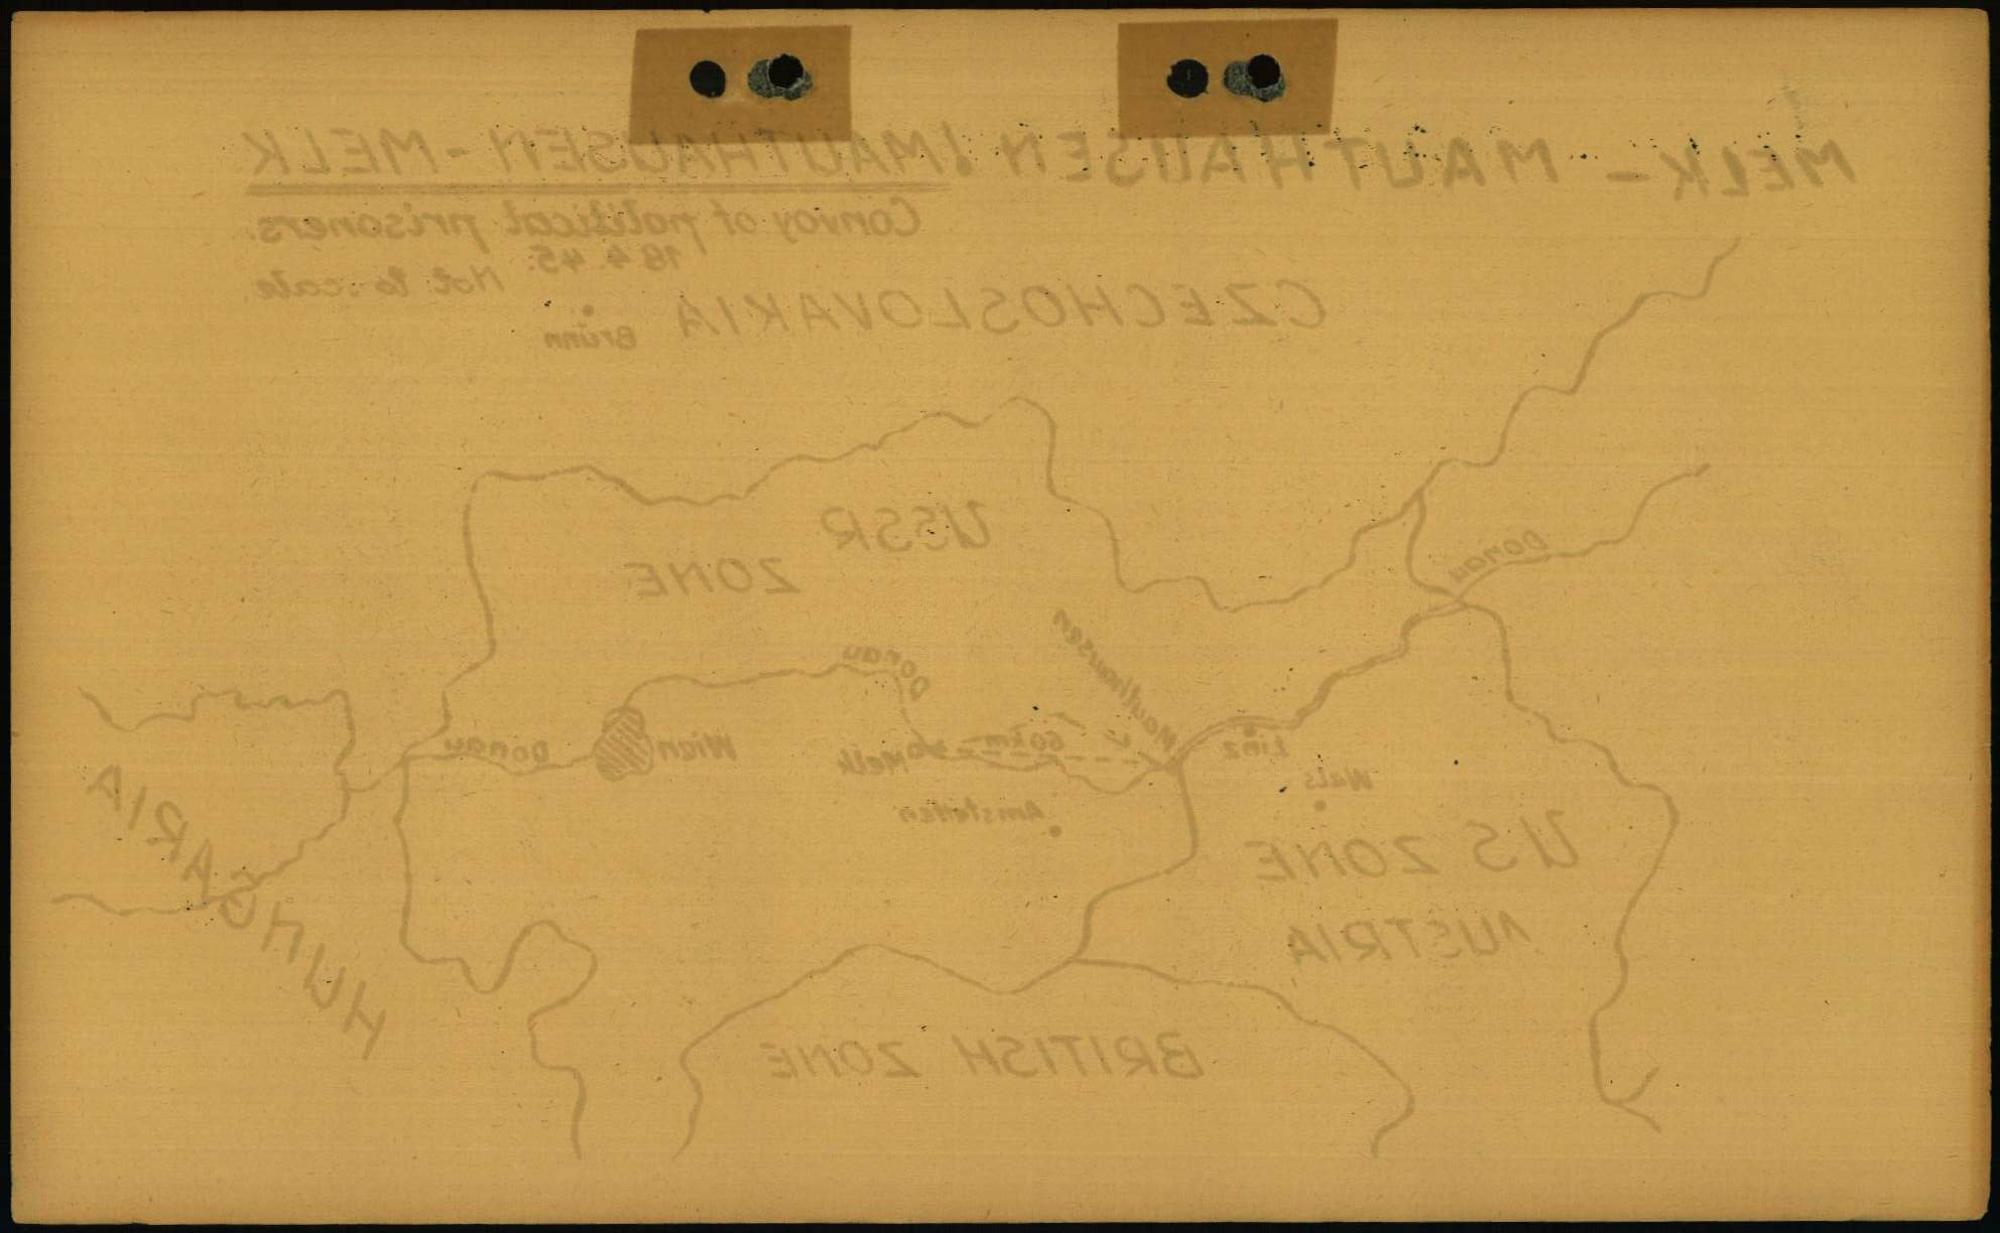 MELK - MAUTHAUSEN
! MAUTHAUSEN - MELK
Convoy of political prisoners.
18.4.45.
Not to scale.
CZECHOSLOVAKIA
Brünn
USSR
ZONE
Donau
Mauthausen
Donau
60 km
Linz
Wels
Melk
Melk
Amstetten
Wien
Donau
HUNGARIA
US ZONE
AUSTRIA
BRITISH ZONE